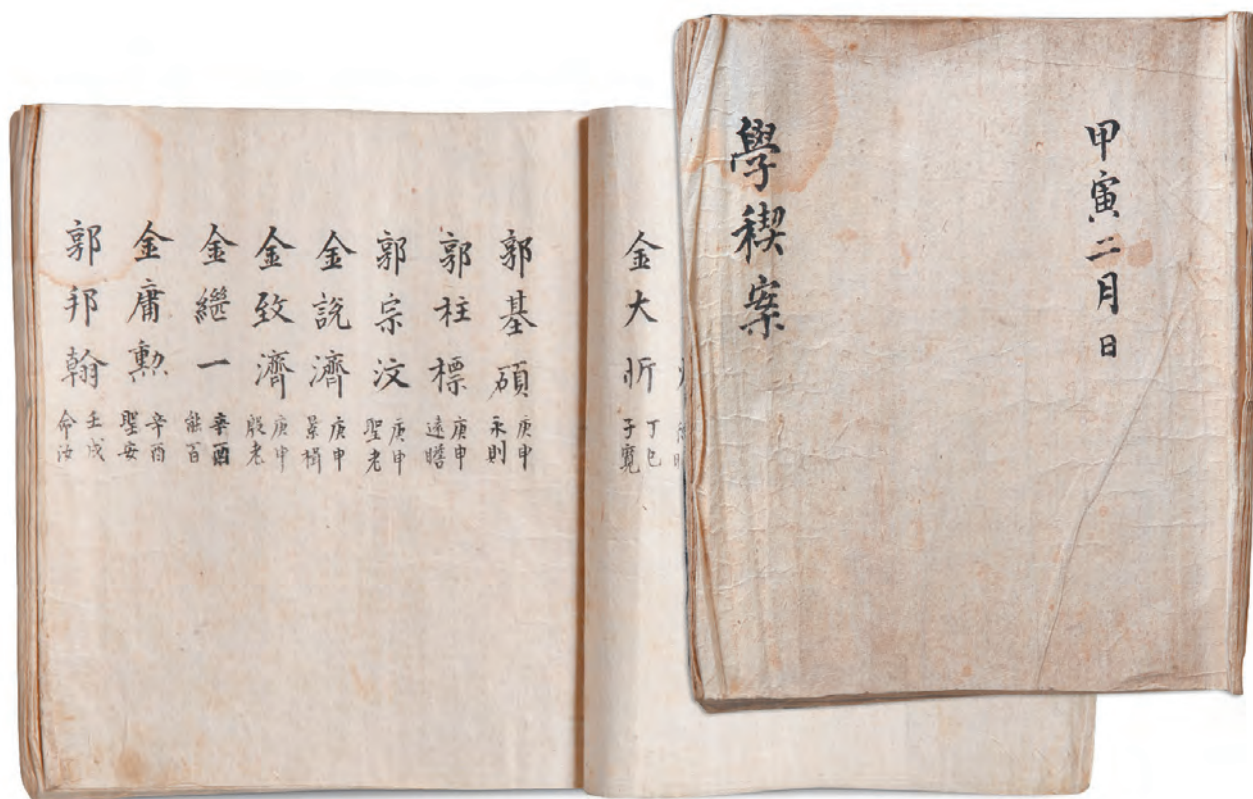 甲寅二月 日
學稧案
金大昕
丁巳
子寬
郭基碩
庚申
永則
郭柱標
庚申
遠瞻
郭宗汶
庚申
聖老
金說濟
庚申
景楫
金致濟
庚申
殷老
金繼一
辛酉
能百
金庸勲
辛酉
聖安
郭邦翰
壬戌
命汝